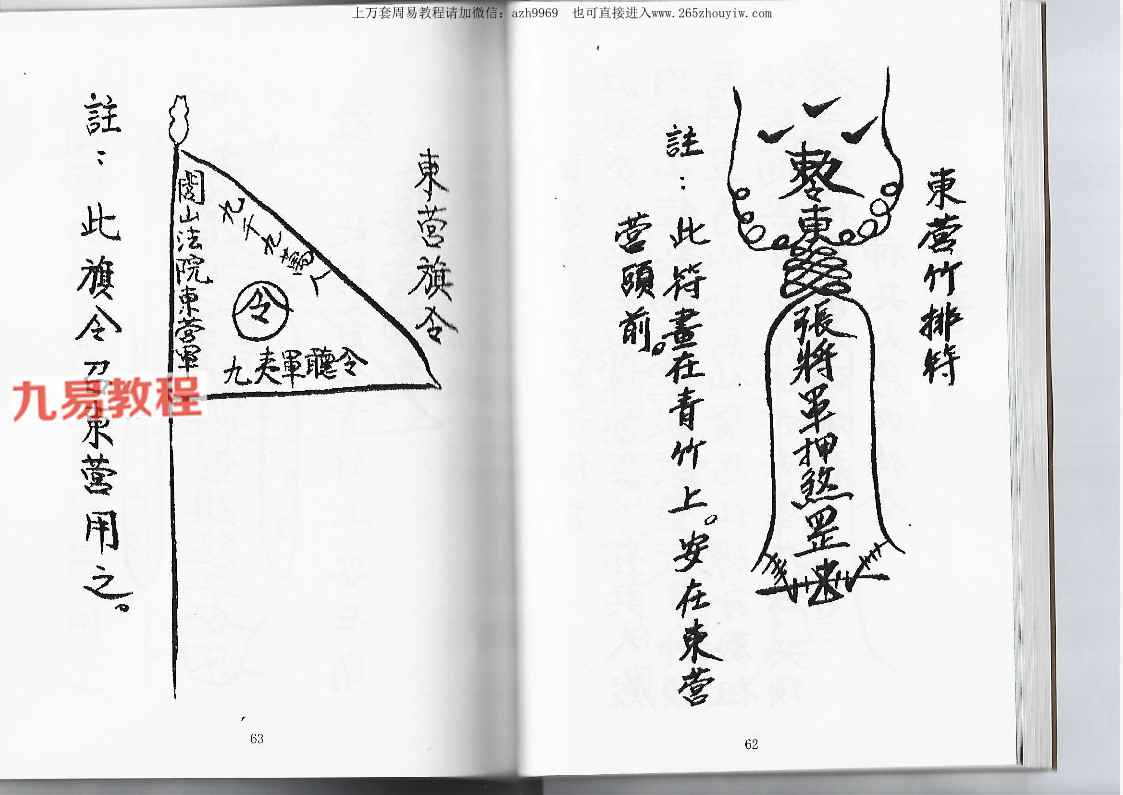 上万套周易教程请加微信：azh9969 也可直接进入www.265zhouyiw.com
東營竹排符
敕令東
張將軍押煞罡
註：此符畫在青竹上。安在東營
營頭前。
62
東營旗令
九千九萬人
閭山法院東營軍
令
九夷軍聽令
註：此旗令召東營用之。
63
九易教程